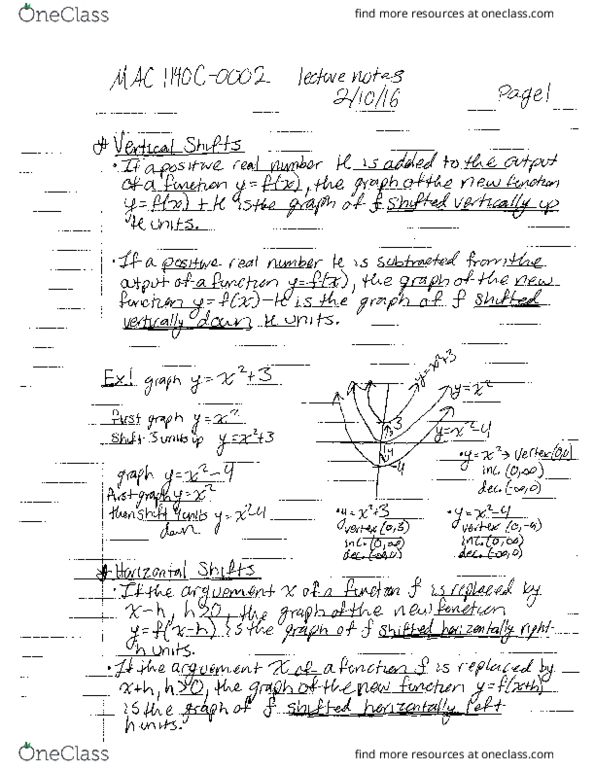 OneClass
find more resources at oneclass.com
MAC 1140C-0002 lecture notes
2/10/16
Page 1
Vertical Shifts
• If a positive real number k is added to the output
of a function y=f(x), the graph of the new function
y=f(x)+k is the graph of f shifted vertically up
k units.
• If a positive real number k is subtracted from the
output of a function y=f(x), the graph of the new
function y=f(x)-k is the graph of f shifted
vertically down k units.
Ex! graph y=x²+3
First graph y=x²
shift 3 units up y=x²+3
y=x²+3
y=x²
3
y=x²-4
4
-4
graph y=x²-4
First graph y=x²
then shift 4 units y=x²-4
down
• y=x²→ vertex (0,0)
inc. (0,∞)
dec. (-∞,0)
• y=x²+3
vertex (0,3)
inc. (0,∞)
dec. (-∞,0)
• y=x²-4
vertex (0,-4)
inc. (0,∞)
dec. (-∞,0)
Horizontal Shifts
• If the arguement x of a function f is replaced by
x-h, h>0, the graph of the new function
y=f(x-h) is the graph of f shifted horizontally right
h units.
• If the arguement x of a function f is replaced by
x+h, h>0, the graph of the new function y=f(x+h)
is the graph of f shifted horizontally left
h units.
OneClass
find more resources at oneclass.com